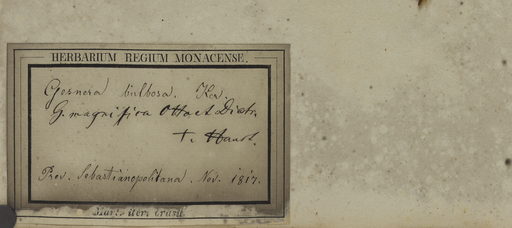 HERBARIUM REGIUM MONACENSE.
Gesnera bulbosa. Ker.
G. magnifica Otto et Dietr.
Prov. Sebastianopolitana. Nov. 1817.
Mart. iter brasil.